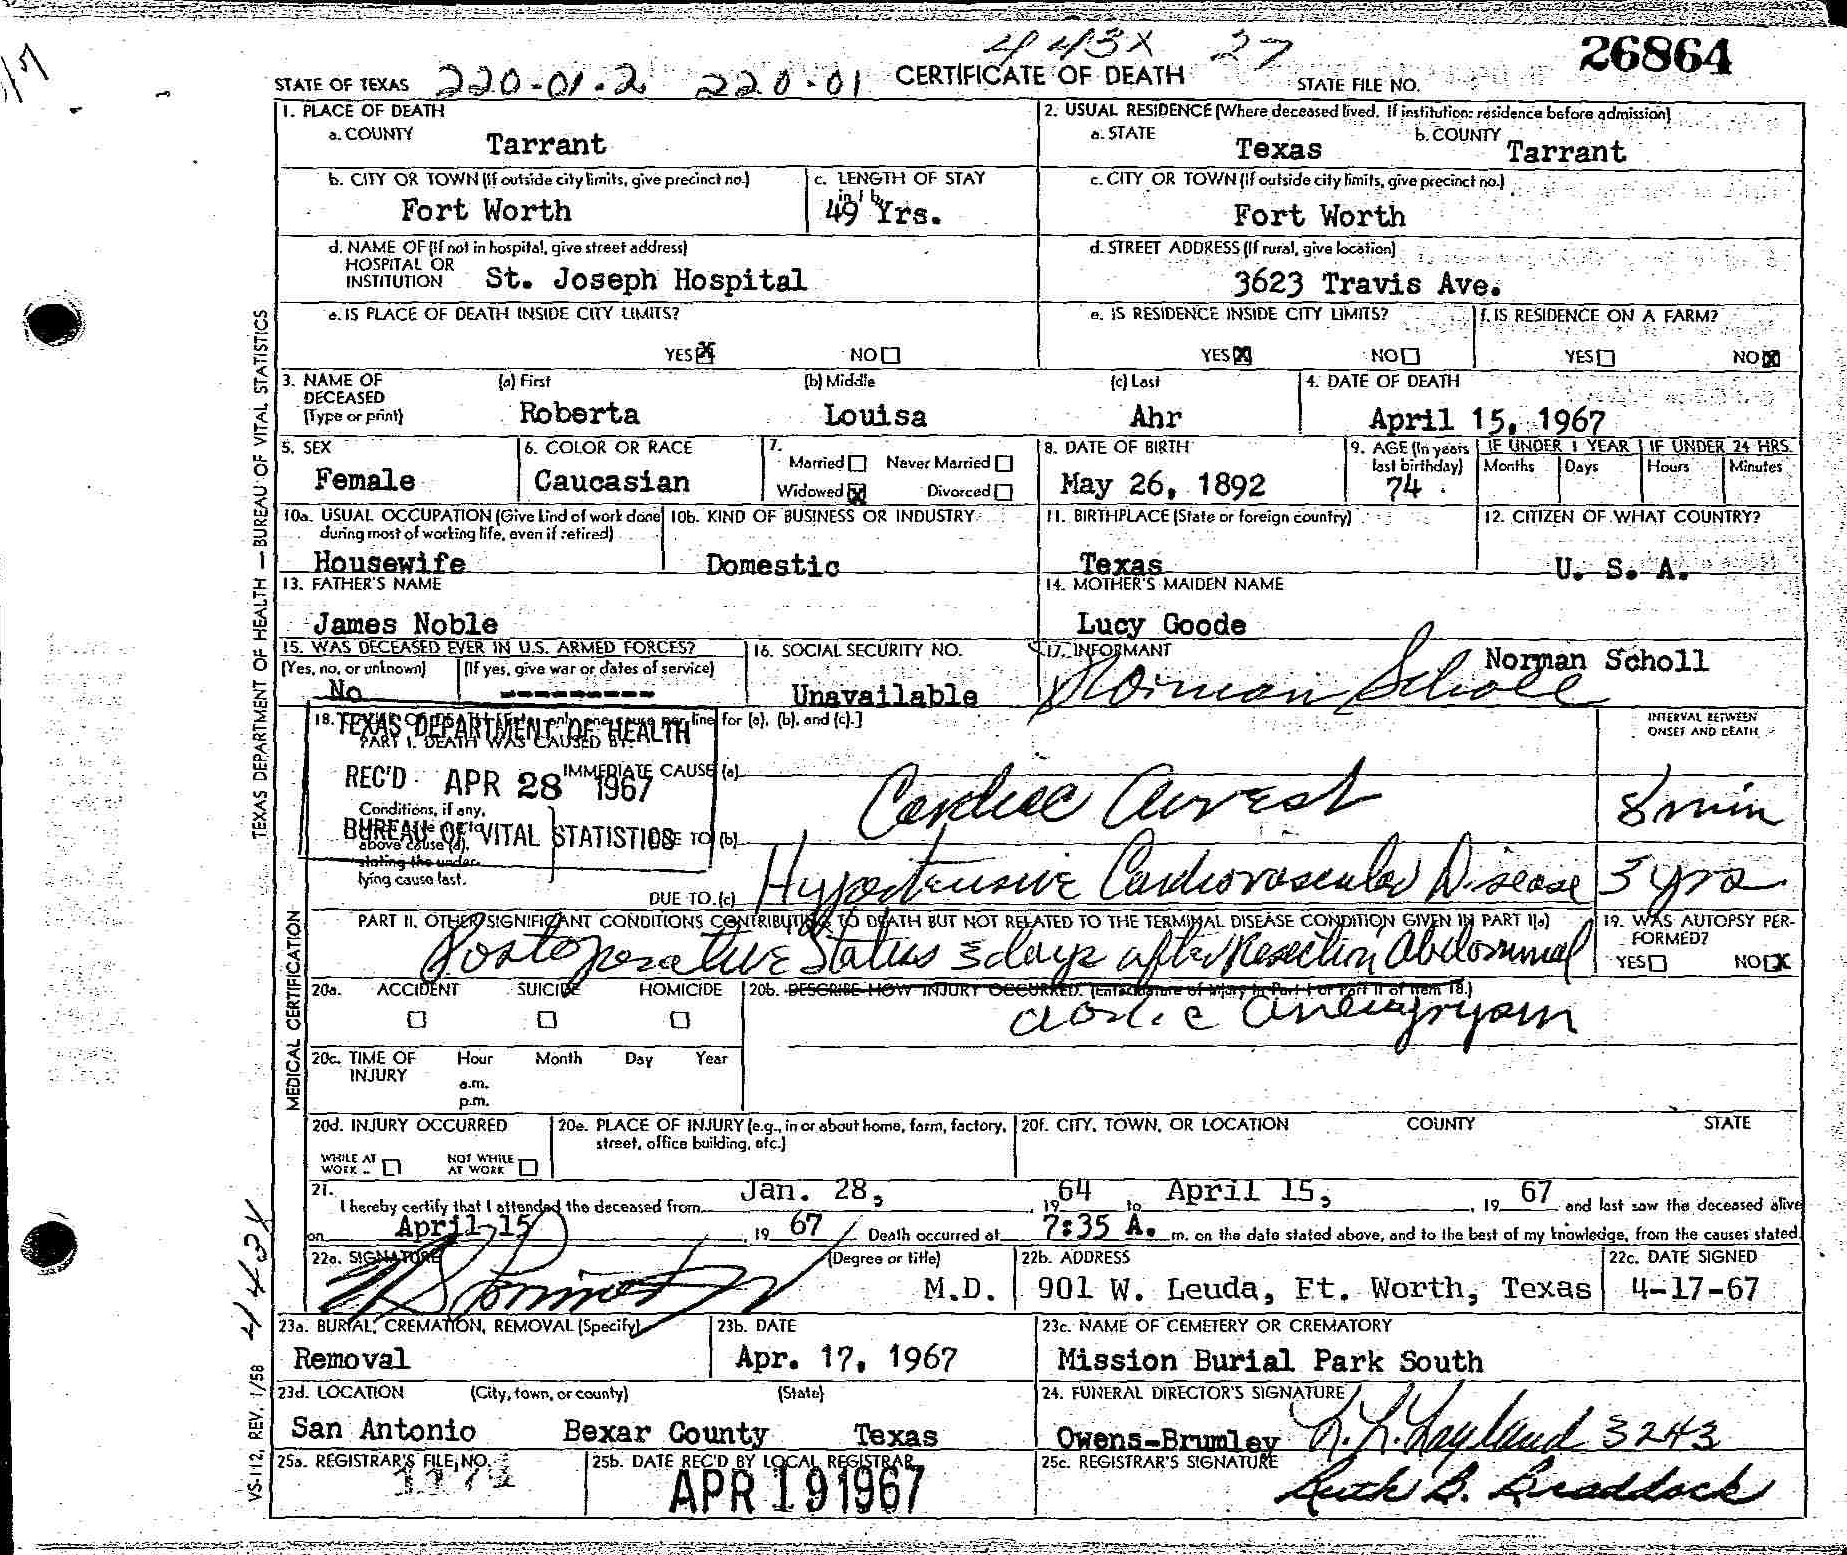 443X 27
26864
STATE OF TEXAS 220-01-2 220-01 CERTIFICATE OF DEATH STATE FILE NO.
1. PLACE OF DEATH
a. COUNTY Tarrant
2. USUAL RESIDENCE (Where deceased lived. If institution: residence before admission)
a. STATE Texas b. COUNTY Tarrant
b. CITY OR TOWN (If outside city limits, give precinct no.) Fort Worth
c. LENGTH OF STAY in 1b 49 Yrs.
c. CITY OR TOWN (If outside city limits, give precinct no.) Fort Worth
d. NAME OF (If not in hospital, give street address)
HOSPITAL OR
INSTITUTION St. Joseph Hospital
d. STREET ADDRESS (If rural, give location)
3623 Travis Ave.
e. IS PLACE OF DEATH INSIDE CITY LIMITS?
YES X NO
e. IS RESIDENCE INSIDE CITY LIMITS?
YES X NO
f. IS RESIDENCE ON A FARM?
YES NO X
3. NAME OF DECEASED (Type or print)
(a) First Roberta
(b) Middle Louisa
(c) Last Ahr
4. DATE OF DEATH
April 15, 1967
5. SEX
Female
6. COLOR OR RACE
Caucasian
7. Married Never Married
Widowed X Divorced
8. DATE OF BIRTH
May 26, 1892
9. AGE (In years last birthday)
74
IF UNDER 1 YEAR Months Days
IF UNDER 24 HRS. Hours Minutes
10a. USUAL OCCUPATION (Give kind of work done during most of working life, even if retired)
Housewife
10b. KIND OF BUSINESS OR INDUSTRY
Domestic
11. BIRTHPLACE (State or foreign country)
Texas
12. CITIZEN OF WHAT COUNTRY?
U. S. A.
13. FATHER'S NAME
James Noble
14. MOTHER'S MAIDEN NAME
Lucy Goode
15. WAS DECEASED EVER IN U.S. ARMED FORCES?
(Yes, no, or unknown) (If yes, give war or dates of service)
No ---------
16. SOCIAL SECURITY NO.
Unavailable
17. INFORMANT Norman Scholl
Norman Scholl
18. line for (a), (b), and (c).]
TEXAS DEPARTMENT OF HEALTH
PART I. DEATH WAS CAUSED BY:
REC'D APR 28 1967
BUREAU OF VITAL STATISTICS
INTERVAL BETWEEN ONSET AND DEATH
IMMEDIATE CAUSE (a)
Cardiac Arrest 8 min
Conditions, if any,
above cause (a),
stating the under-
lying cause last.
DUE TO (b)
Hypertensive Cardiovascular Disease 3 yrs
DUE TO (c)
PART II. OTHER SIGNIFICANT CONDITIONS CONTRIBUTING TO DEATH BUT NOT RELATED TO THE TERMINAL DISEASE CONDITION GIVEN IN PART I(a)
Postoperative Status 3 days after Resection Abdominal
aortic aneurysm
19. WAS AUTOPSY PERFORMED?
YES NO X
20a. ACCIDENT SUICIDE HOMICIDE
20b. DESCRIBE HOW INJURY OCCURRED. (Enter nature of injury in Part I or Part II of item 18.)
20c. TIME OF INJURY Hour Month Day Year
a.m.
p.m.
20d. INJURY OCCURRED
WHILE AT WORK NOT WHILE AT WORK
20e. PLACE OF INJURY (e.g., in or about home, farm, factory, street, office building, etc.)
20f. CITY, TOWN, OR LOCATION COUNTY STATE
21. I hereby certify that I attended the deceased from Jan. 28, 1964 to April 15, 1967 and last saw the deceased alive
on April 15 1967. Death occurred at 7:35 A. m. on the date stated above, and to the best of my knowledge, from the causes stated.
22a. SIGNATURE (Degree or title)
M.D.
22b. ADDRESS
901 W. Leuda, Ft. Worth, Texas
22c. DATE SIGNED
4-17-67
23a. BURIAL, CREMATION, REMOVAL (Specify)
Removal
23b. DATE
Apr. 17, 1967
23c. NAME OF CEMETERY OR CREMATORY
Mission Burial Park South
23d. LOCATION (City, town, or county) (State)
San Antonio Bexar County Texas
24. FUNERAL DIRECTOR'S SIGNATURE
Owens-Brumley 3243
25a. REGISTRAR'S FILE NO.
25b. DATE REC'D BY LOCAL REGISTRAR
APR 19 1967
25c. REGISTRAR'S SIGNATURE
Ruth B. Braddock
TEXAS DEPARTMENT OF HEALTH — BUREAU OF VITAL STATISTICS
MEDICAL CERTIFICATION
443X
VS-112, REV. 1/58